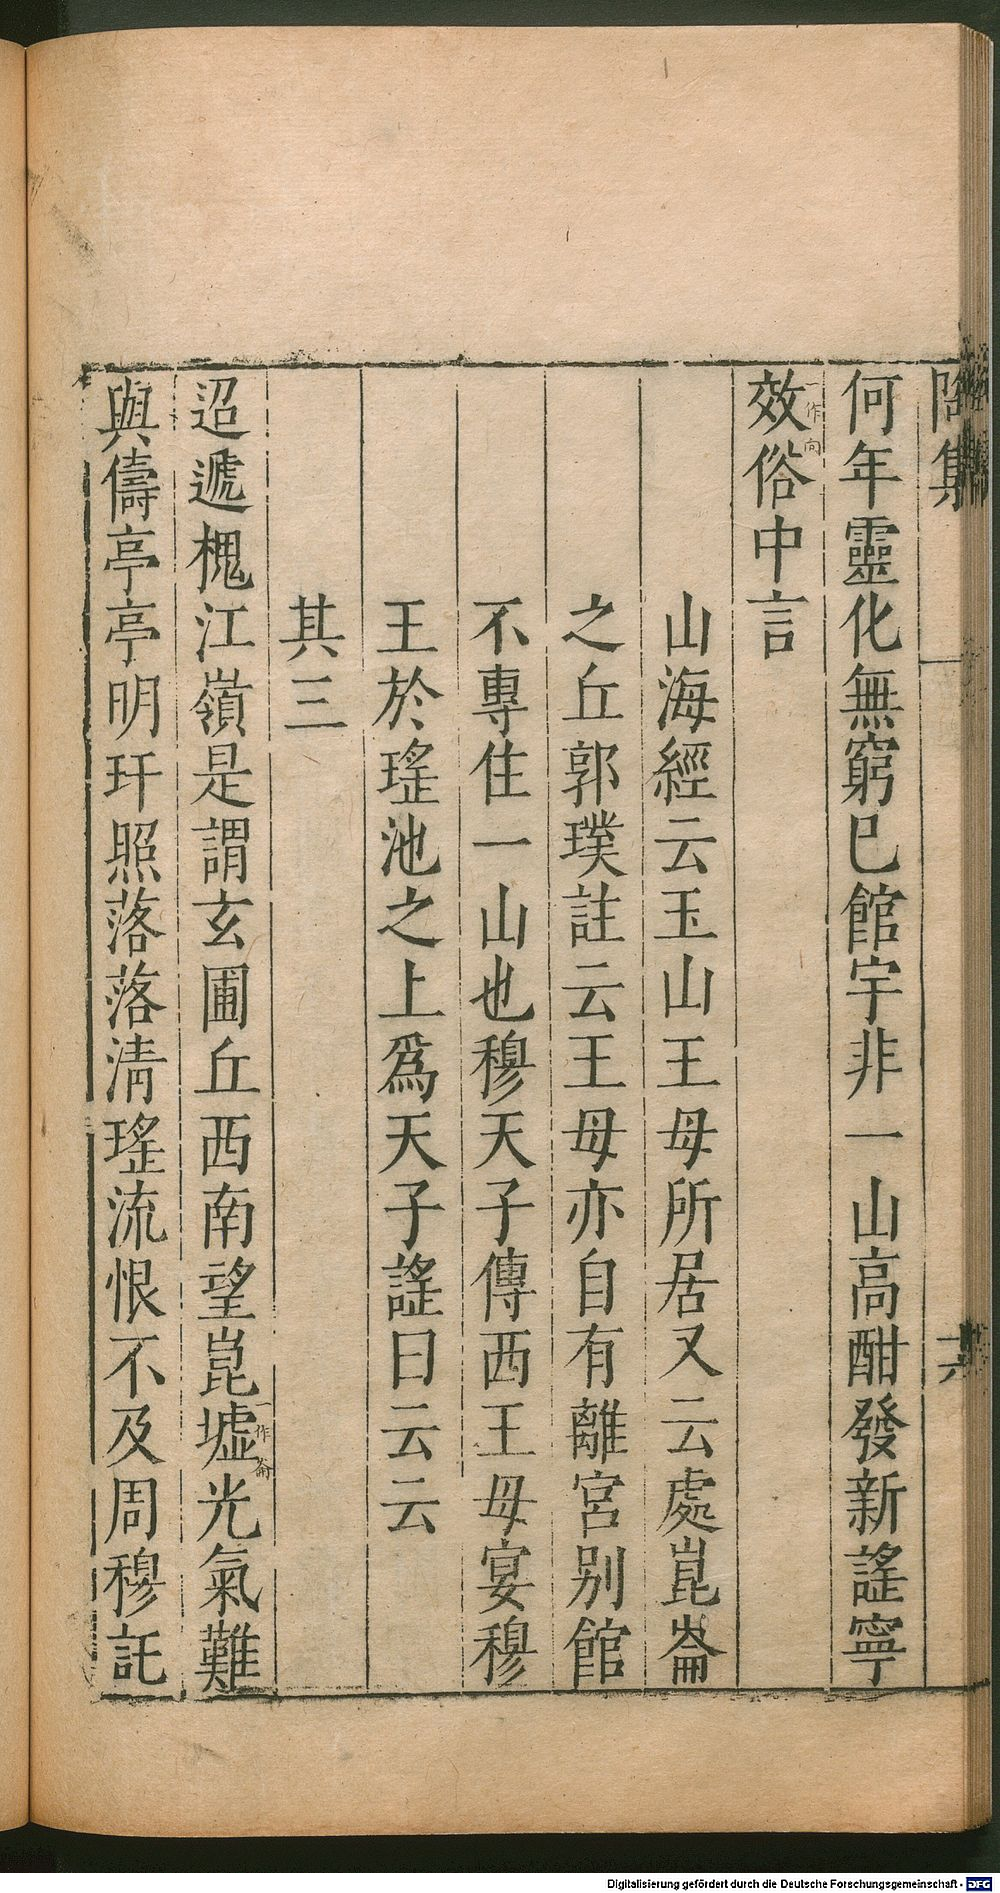 陶集
十六
何年靈化無窮巳館宇非一山高酣發新謠寧
效一作向俗中言
山海經云玉山王母所居又云處崑崙
之丘郭璞註云王母亦自有離宮别館
不專住一山也穆天子傳西王母宴穆
王於瑤池之上爲天子謠曰云云
其三
迢遞槐江嶺是謂玄圃丘西南望崑墟一作崙光氣難
與儔亭亭明玕照落落清瑤流恨不及周穆託
Digitalisierung gefördert durch die Deutsche Forschungsgemeinschaft - DFG